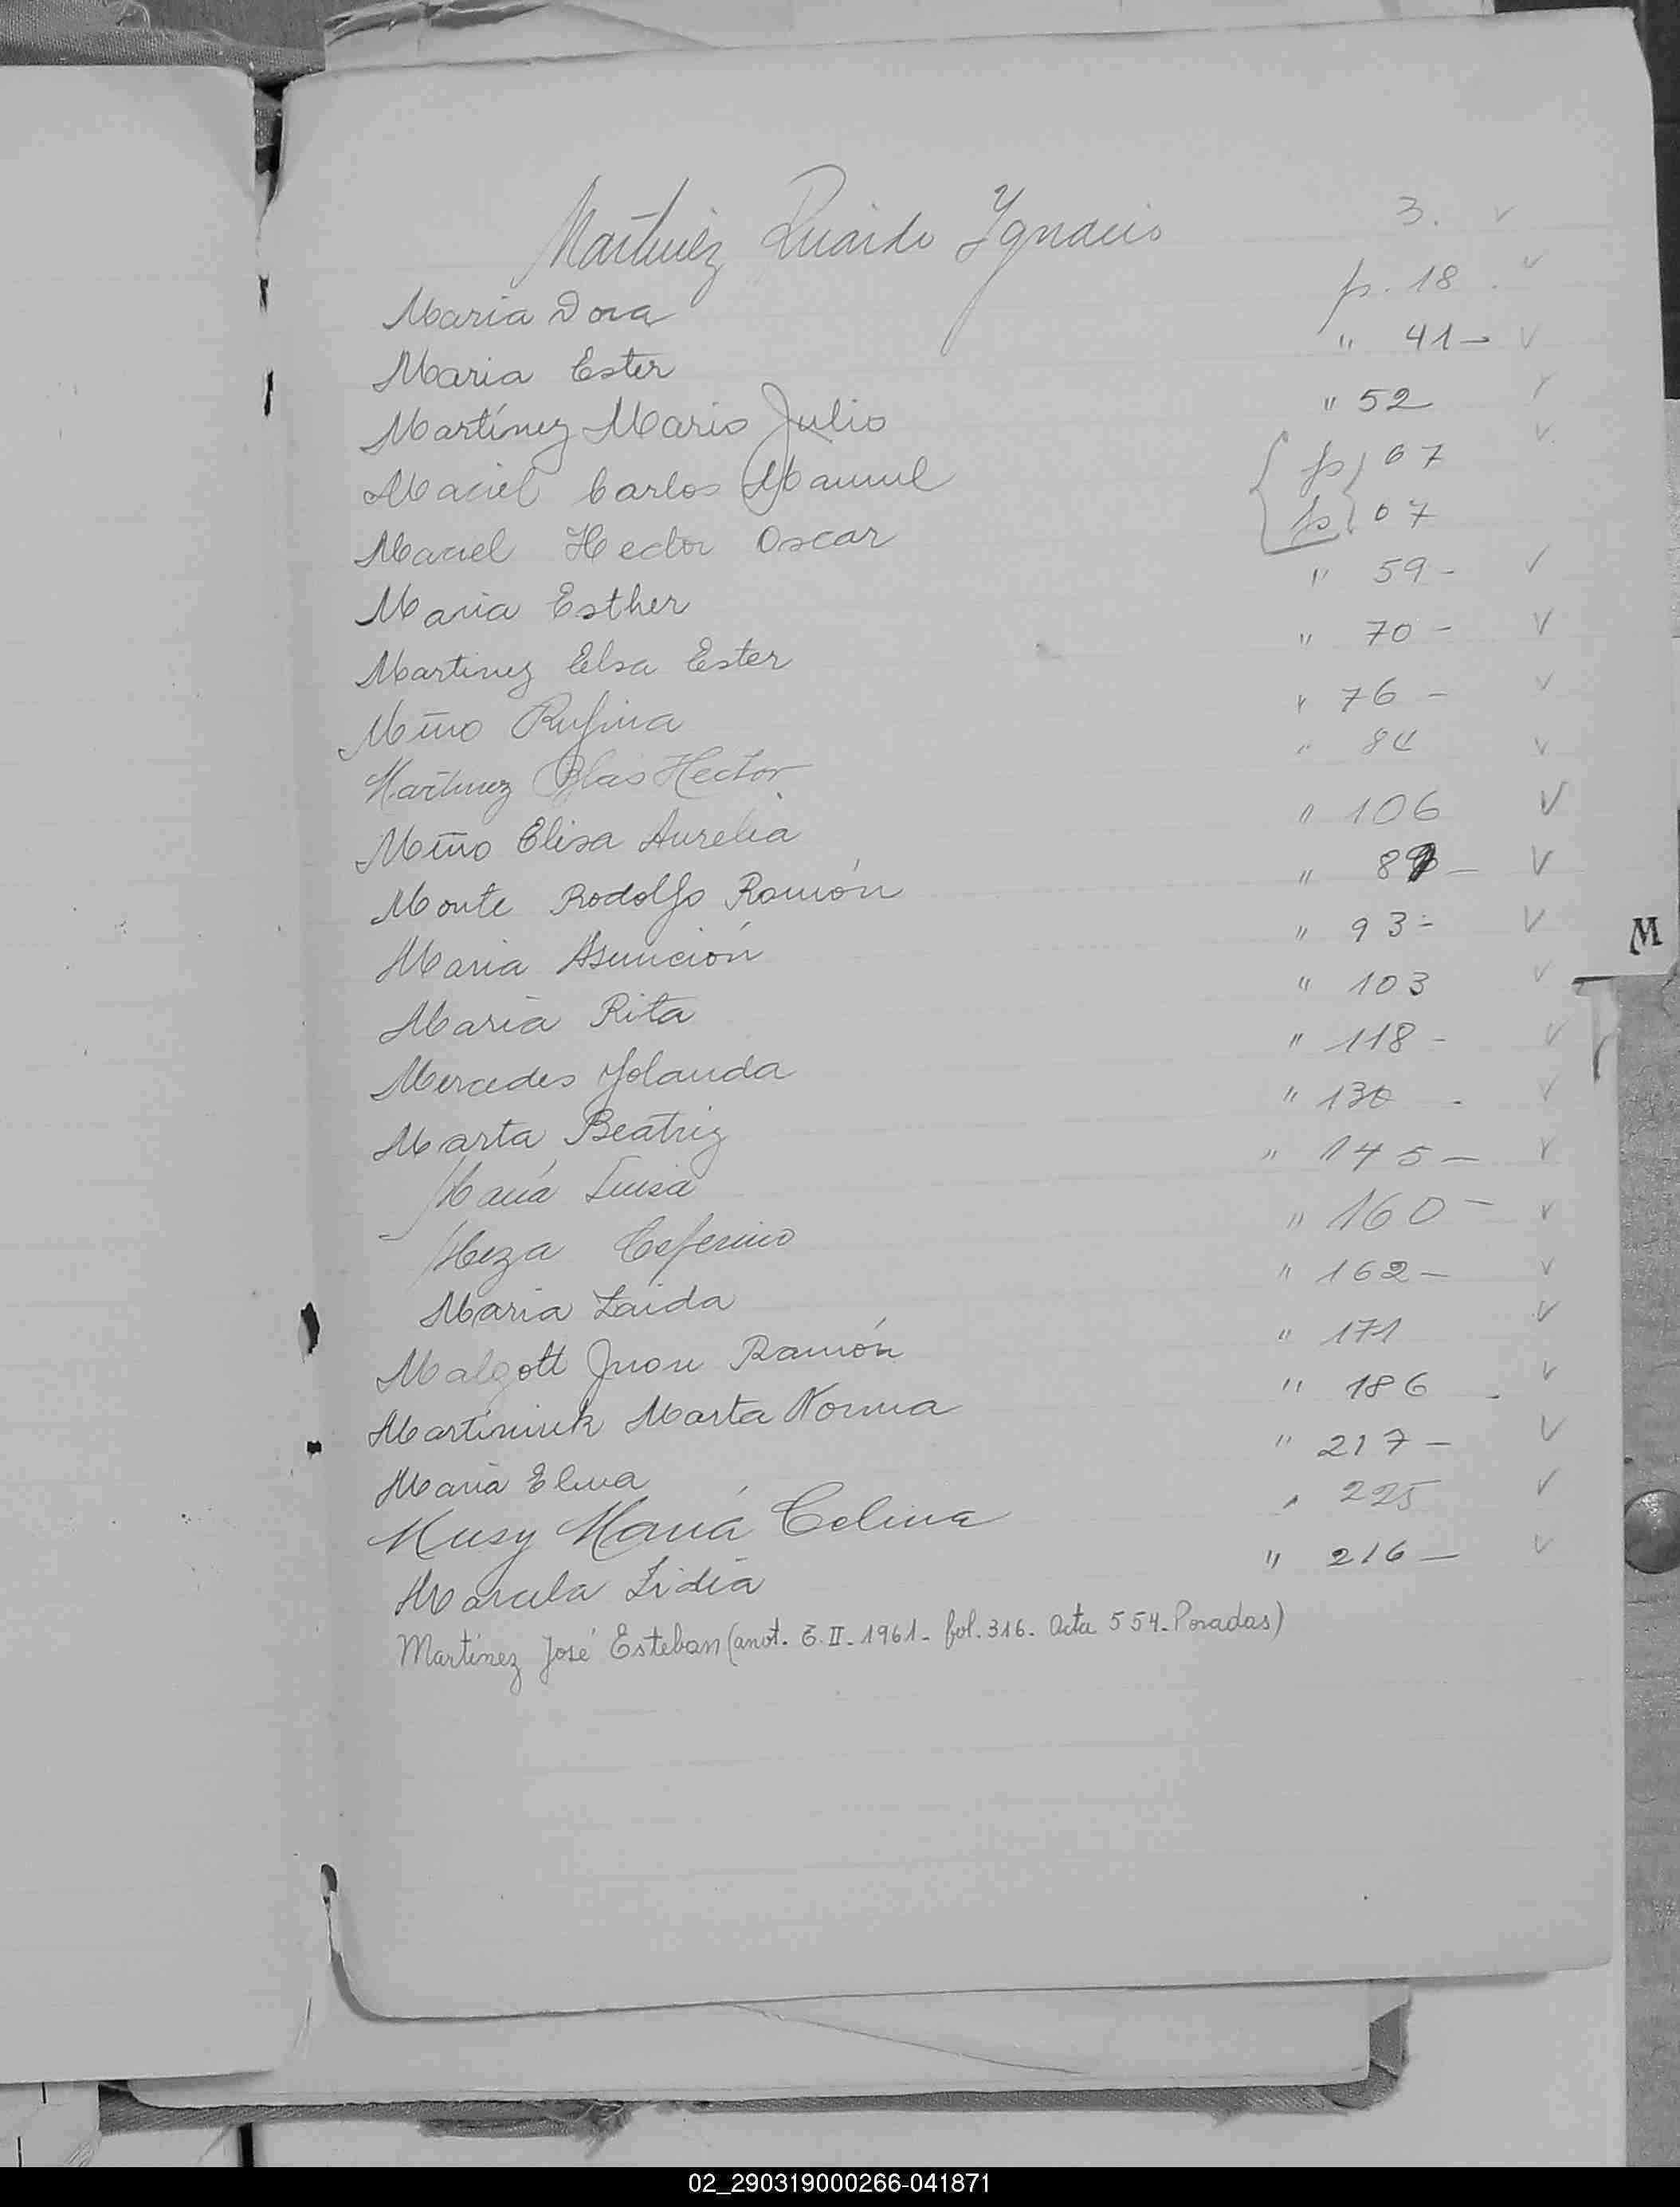 Martinez Ricardo Ygnacio 3. ✓
Maria Dora p. 18. ✓
Maria Ester " 41- ✓
Martínez Mario Julio " 52 ✓
Maciel Carlos Manuel p 67 ✓
Maciel Hector Oscar p 67
Maria Esther " 59- ✓
Martinez Elsa Ester " 70- ✓
Miño Rufina " 76- ✓
Martinez Blas Hector " 84 ✓
Miño Elisa Aurelia " 106 ✓
Monte Rodolfo Ramón " ✓
Maria Asunción " 93- ✓
Maria Rita " 103 ✓
Mercedes Yolanda " 118- ✓
Marta Beatriz " 130 - ✓
María Luisa " 145- ✓
Meza Ceferino " 160- ✓
Maria Zaida " 162- ✓
Malgott Juan Ramón " 171 ✓
Martiniuk Marta Norma " 186 - ✓
Maria Elma " 217- ✓
Musy María Celina " 225 ✓
Marcela Lidia " 216- ✓
Martínez José Esteban (anot. E. II-1961- fol. 316- Acta 554-Posadas)
M
02_290319000266-041871